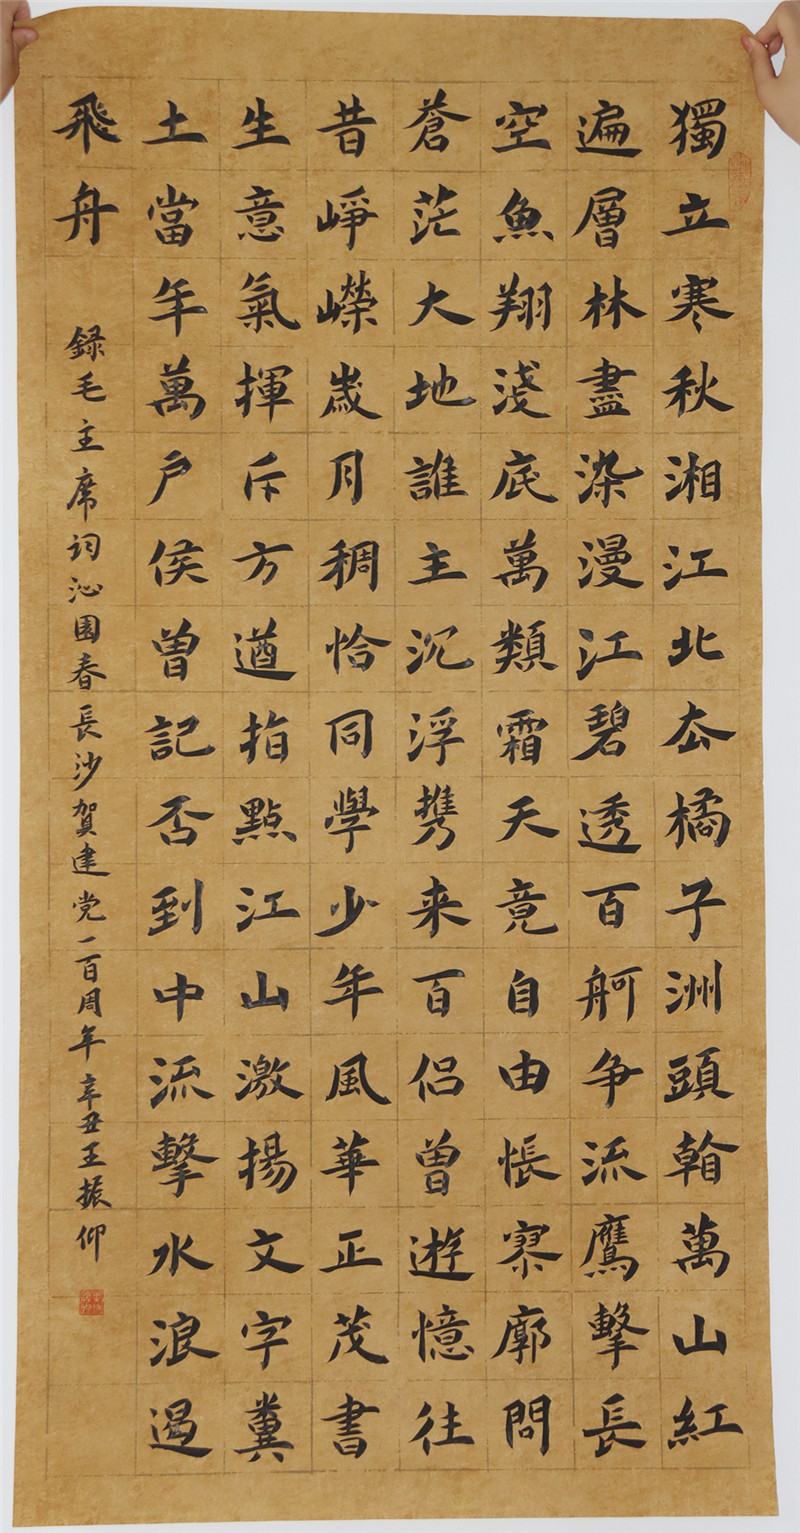 獨立寒秋湘江北去橘子洲頭看萬山紅
遍層林盡染漫江碧透百舸争流鷹擊長
空魚翔淺底萬類霜天竟自由悵寥廓問
蒼茫大地誰主沉浮携来百侣曾遊憶往
昔崢嶸歲月稠恰同學少年風華正茂書
生意氣揮斥方遒指點江山激揚文字糞
土當年萬户侯曾記否到中流擊水浪遏
飛舟
録毛主席詞沁園春長沙賀建党一百周年辛丑王振仰